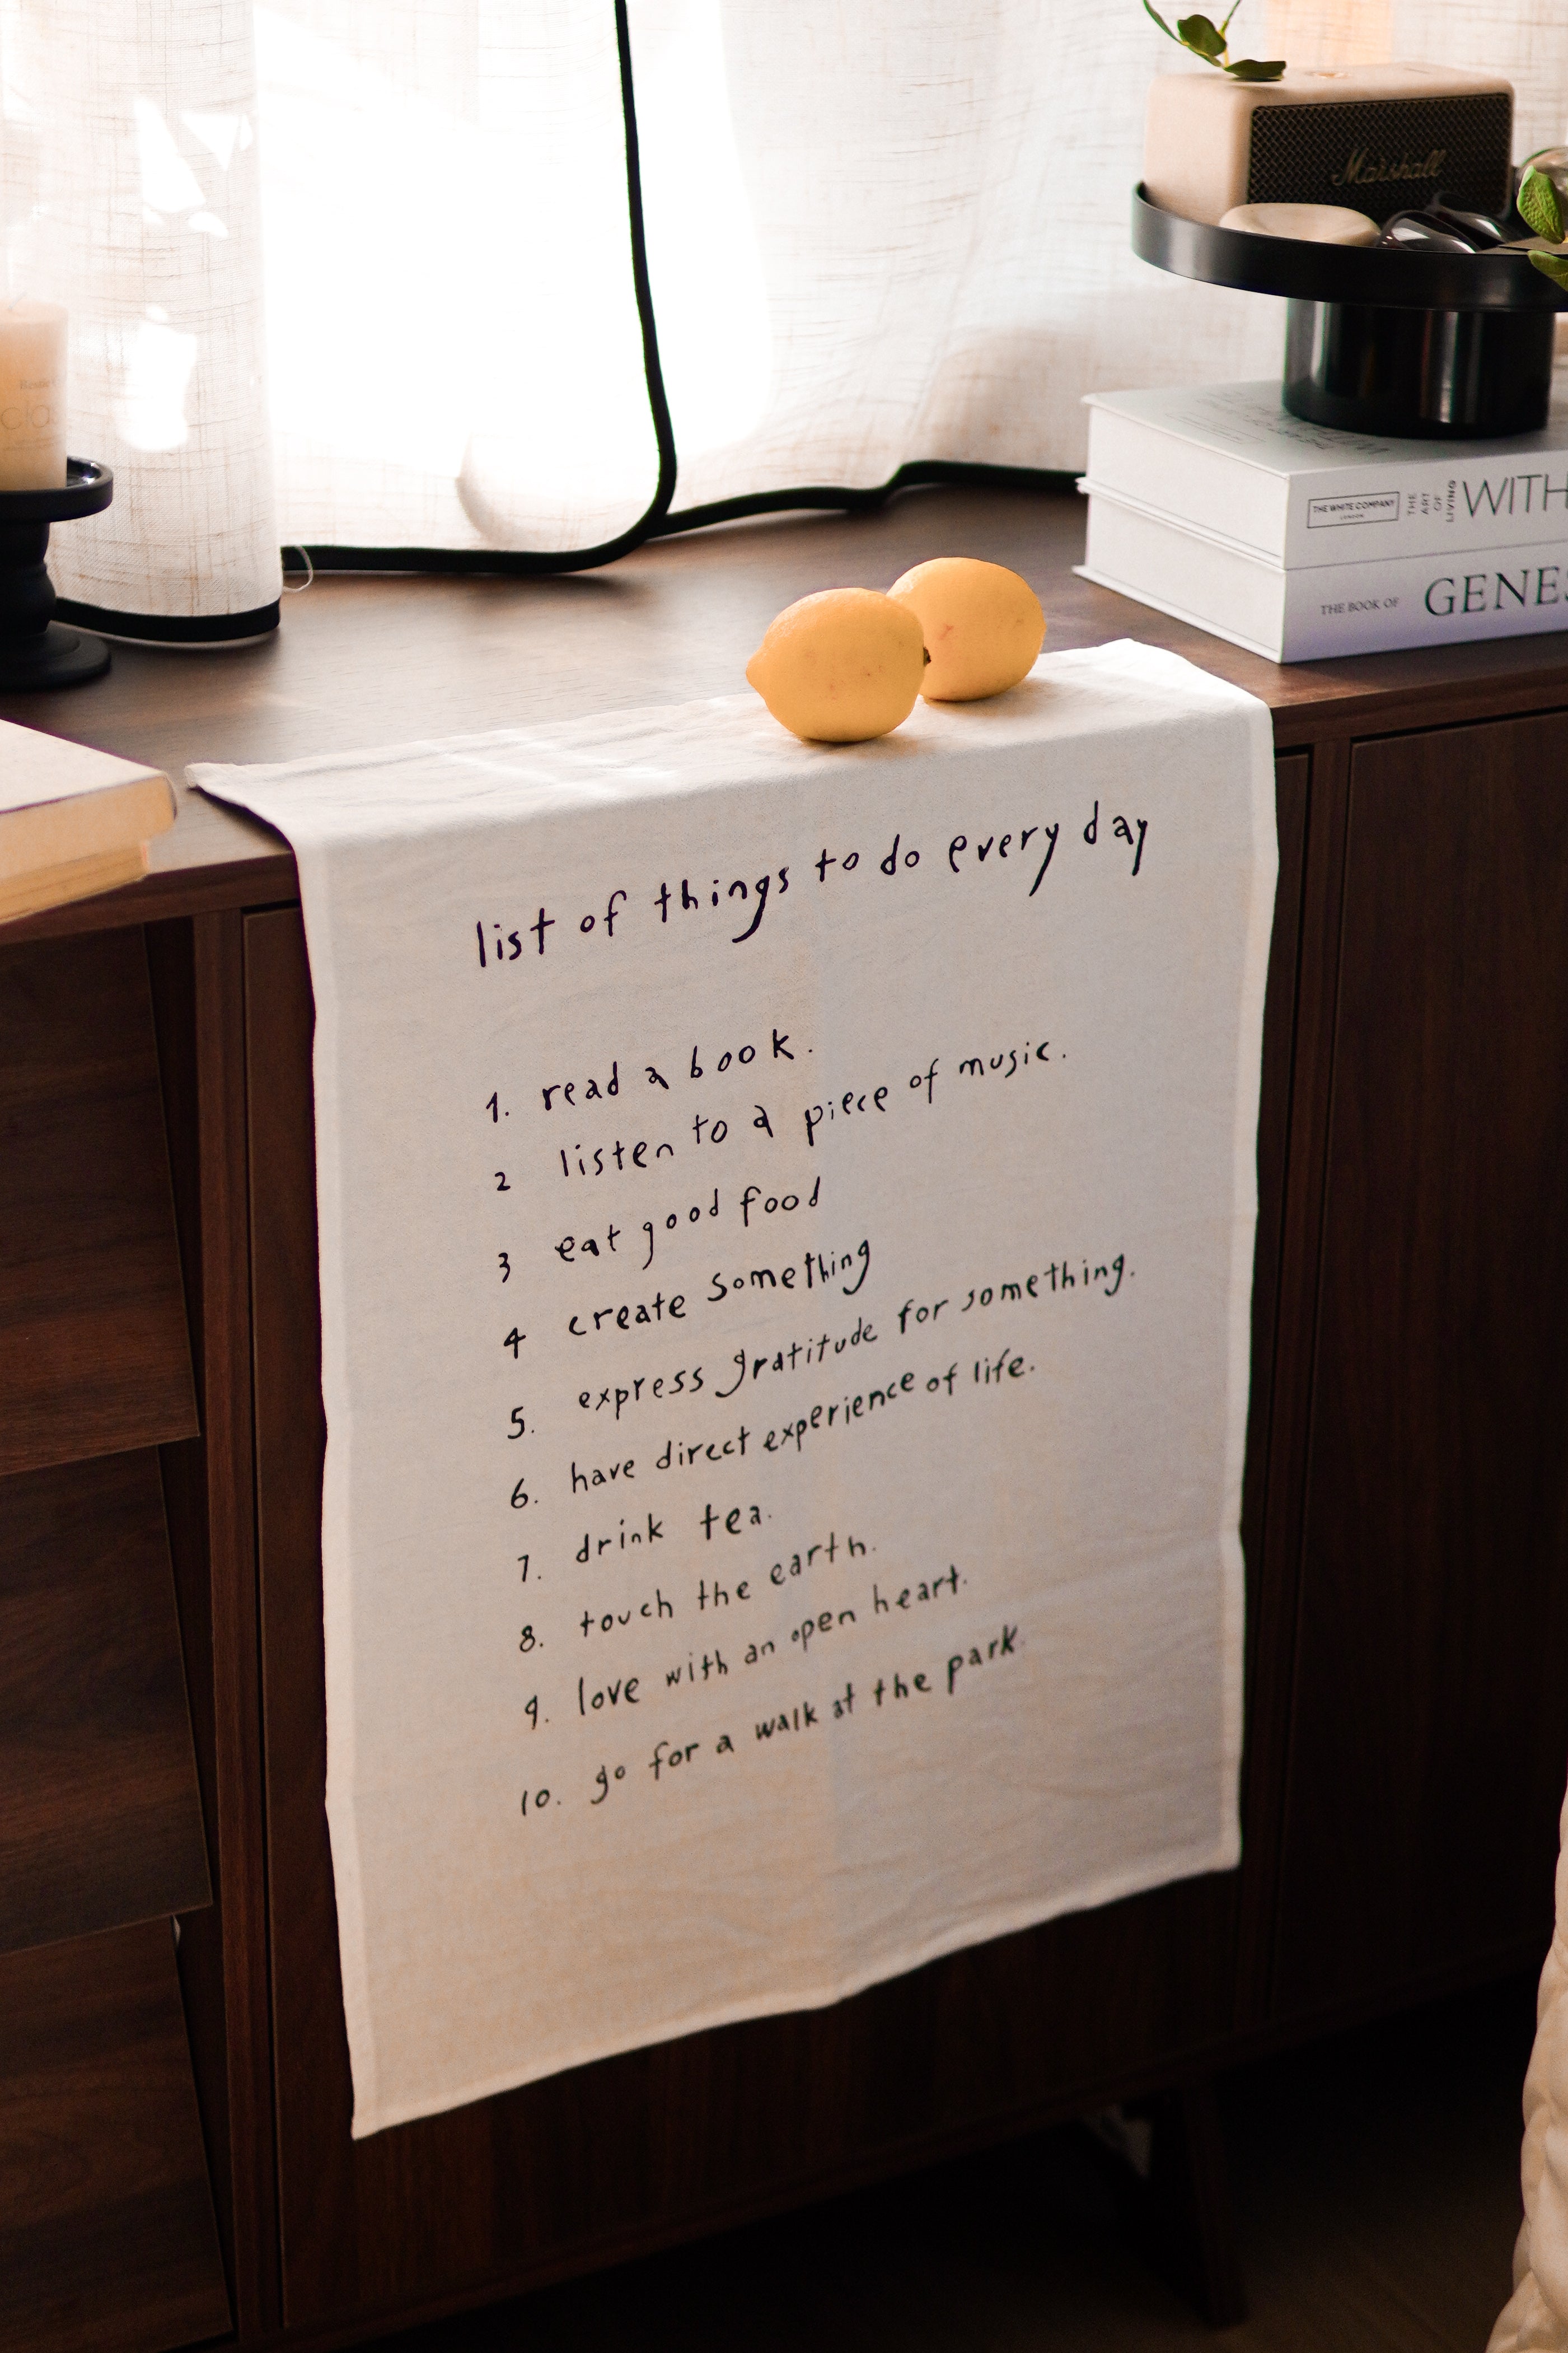 Marshall
THE WHITE COMPANY
LONDON
THE
ART
OF
LIVING
WITH
THE BOOK OF
list of things to do every day
1. read a book.
2 listen to a piece of music.
3 eat good food
4 create something
5. express gratitude for something.
6. have direct experience of life.
7. drink tea.
8. touch the earth.
9. love with an open heart.
10. go for a walk at the park.